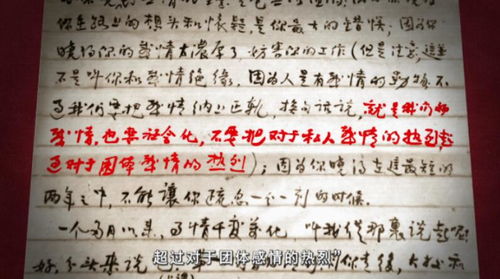 你走路上的想头和怀疑,是你最大的错误,因为你
晓得你的感情太浓厚了,妨害你的工作(但是注意,这并
不是叫你和感情绝缘,因为人是有感情的动物,不
过我们要把感情纳上正轨,换句话说,就是我们的
感情,也要社会化,不要把对于私人感情的热烈超
过对于团体感情的热烈);因为你晓得在这最短的
两年之中,不能讓你疏忽一分一刻的时候。
一个多月以来,事情千变万化,叫我从那裏说起呢
好,分头来说
超过对于团体感情的热烈”